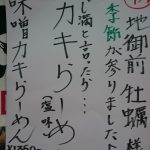 地御前 牡蠣 様
季節が参りました
し満と言ったら…
カキらーめ
(塩味)
味噌カキらーめん
¥1350